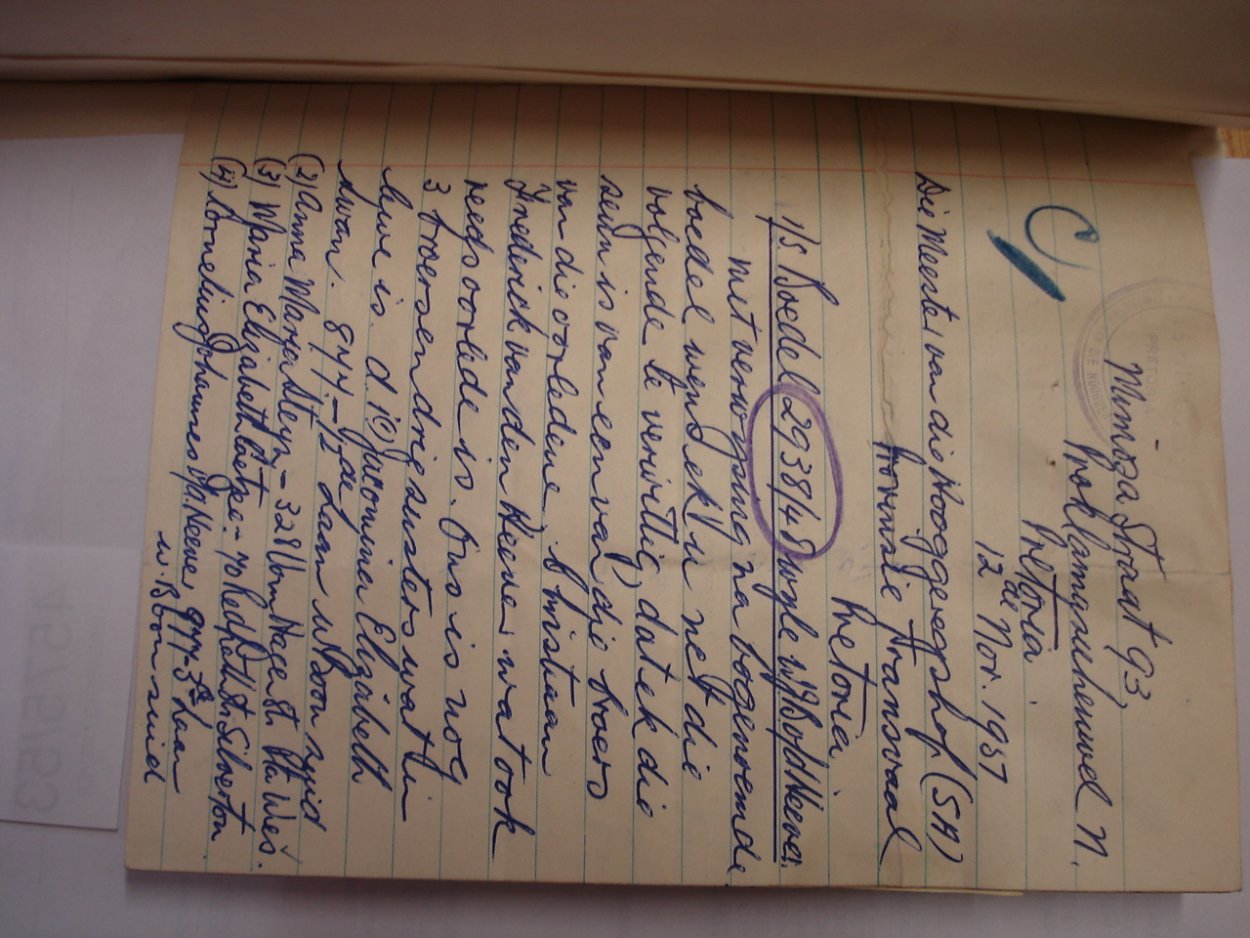 Mimosa Straat 93,
Proklamasieheuwel N.
Pretoria.
12de Nov. 1957
C
PRETORIA
Die Meester van die Hooggeregshof (SA)
Provinsie Transvaal
Pretoria.
I/S Boedel 2938/48 wyle
Met verwysing na bogenoemde
boedel wens ek u net die
volgende te verwittig, dat ek die
seun is van een van die broers
van die oorledene Christiaan
Frederick van den Heever wat ook
reeds oorlede is. Ons is nog
3 broers en drie susters wat in
lewe is. d.i. (1) Jacomina Elizabeth
Swan. 844 – 1ste Laan W Boom suid
(2) Anna Maria Steyn – 328 Von Hagen st. Pta Wes.
(3) Maria Elizabeth Coetze – 70 St. Silverton
(4) Cornelius Johannes v/d Heever 977 – 3de Laan
W. Boom suid
4575/53